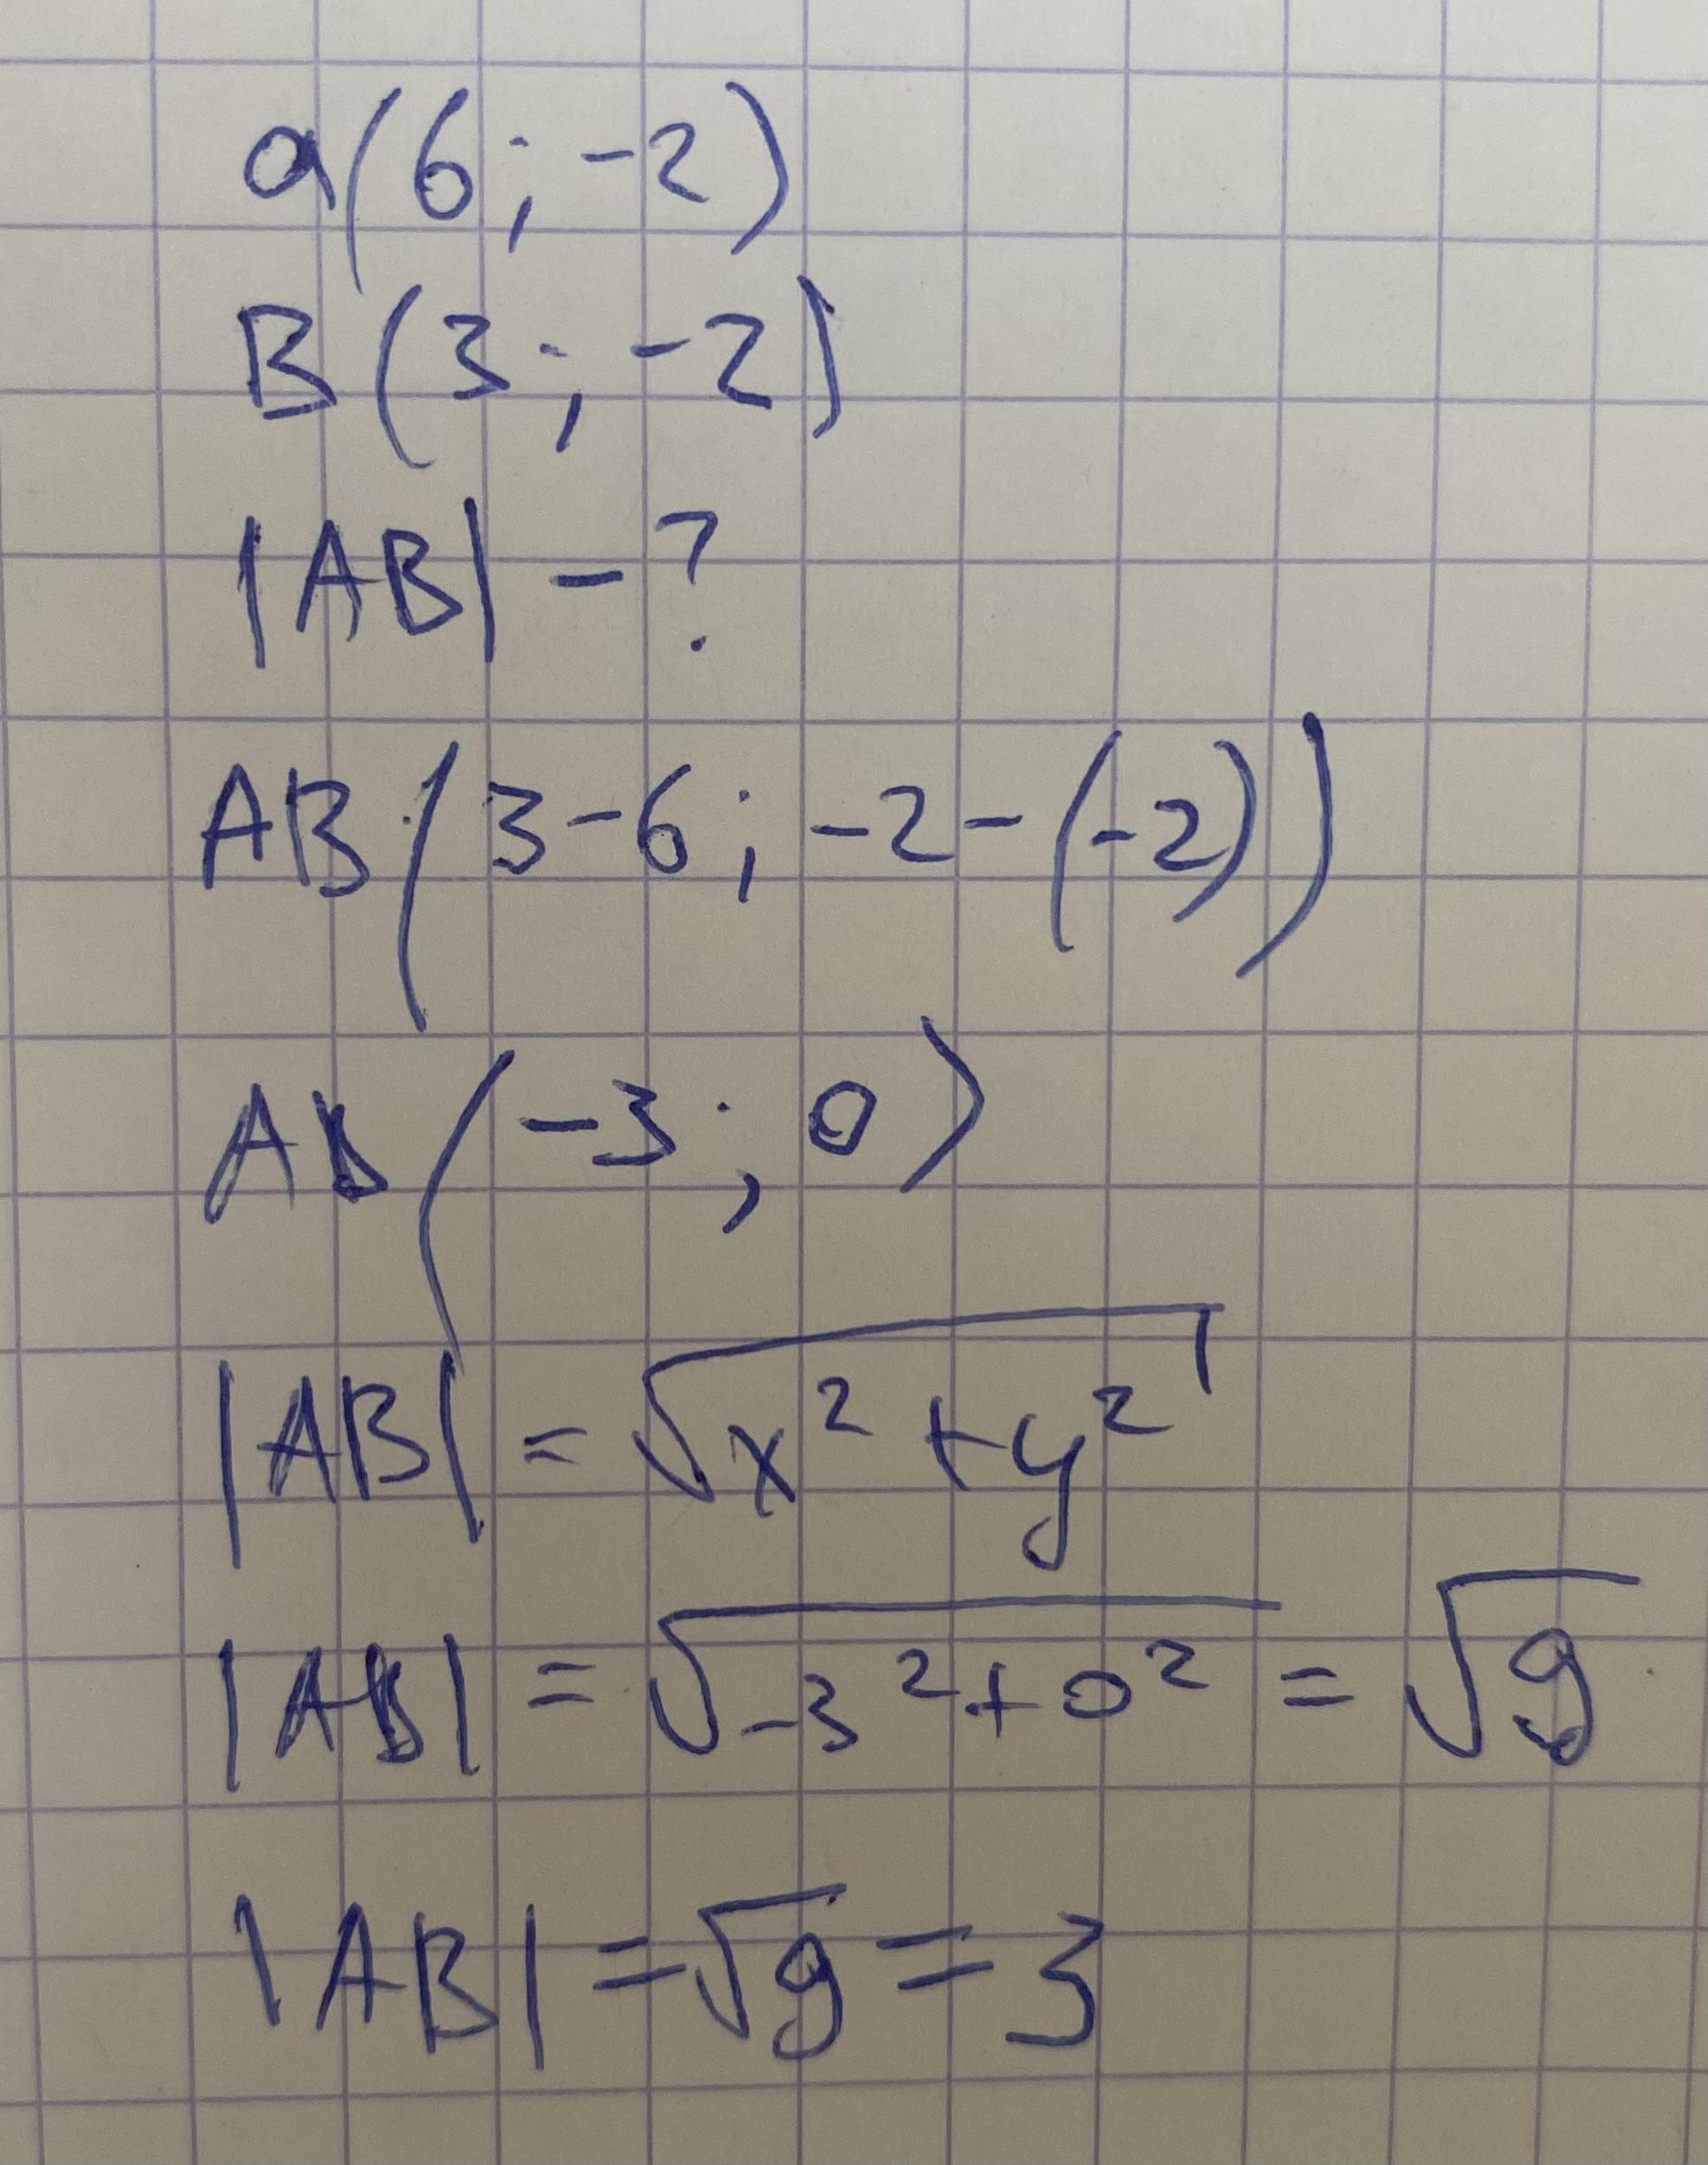 a(6; -2)
B(3; -2)
|AB| - ?
AB(3-6; -2-(-2))
AB(-3; 0)
|AB| = √x² + y²
|AB| = √-3² + 0² = √9
|AB| = √9 = 3